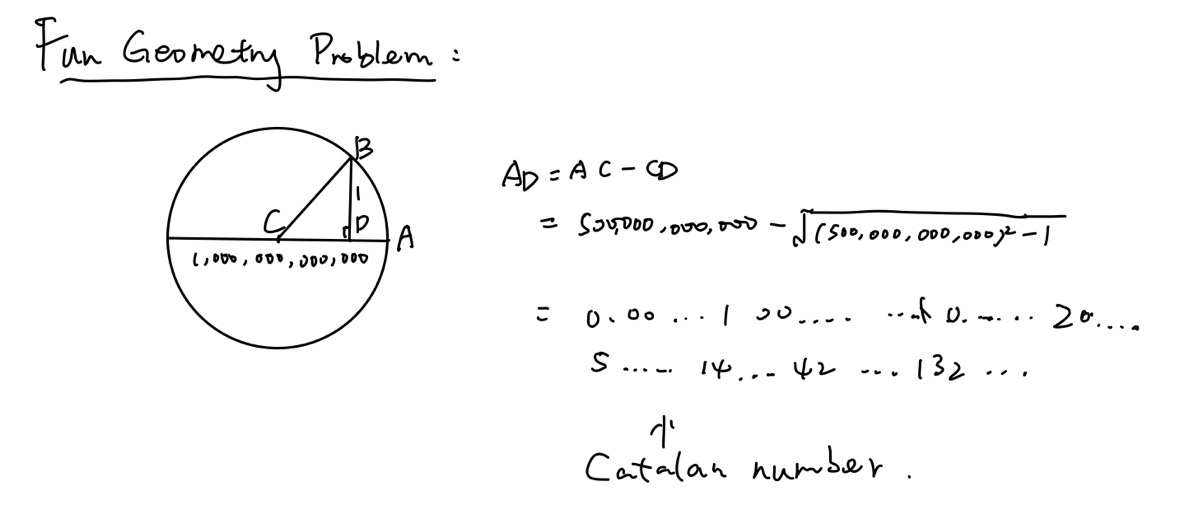 Fun Geometry Problem :
B
1
C
D
A
1,000,000,000,000
AD = AC - CD
= 500,000,000,000 - √(500,000,000,000)² - 1
= 0.00 ... 1 00 .... ...1 0. ...... 20....
5 ..... 14 ... 42 ... 132 ...
↑
Catalan number .